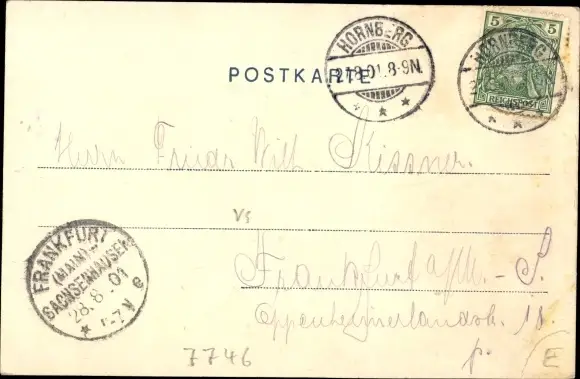 HORNBERG
27.8.01.8-9N.
5 5
REICHSPOST
HORNBERG
POSTKARTE
Herrn Friedr. Wilh. Kissner.
Vs
FRANKFURT
(MAIN)
SACHSENHAUSEN
28.8.01
6-7 V
e
Frankfurt a/M. - S.
Oppenheimerlandstr. 18.
p.
7746
E